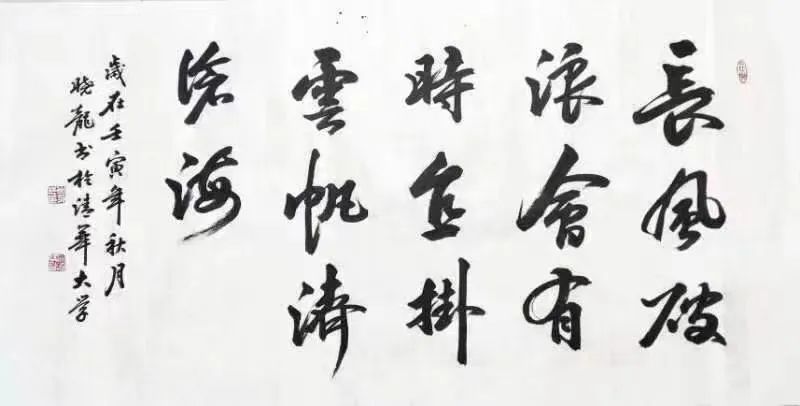 長風破
浪會有
時直掛
雲帆濟
滄海
歲在壬寅年秋月
晓龍书於清華大学